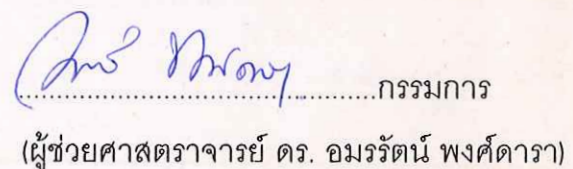 กรรมการ
(ผู้ช่วยศาสตราจารย์ ดร. อมรรัตน์ พงศ์ดารา)